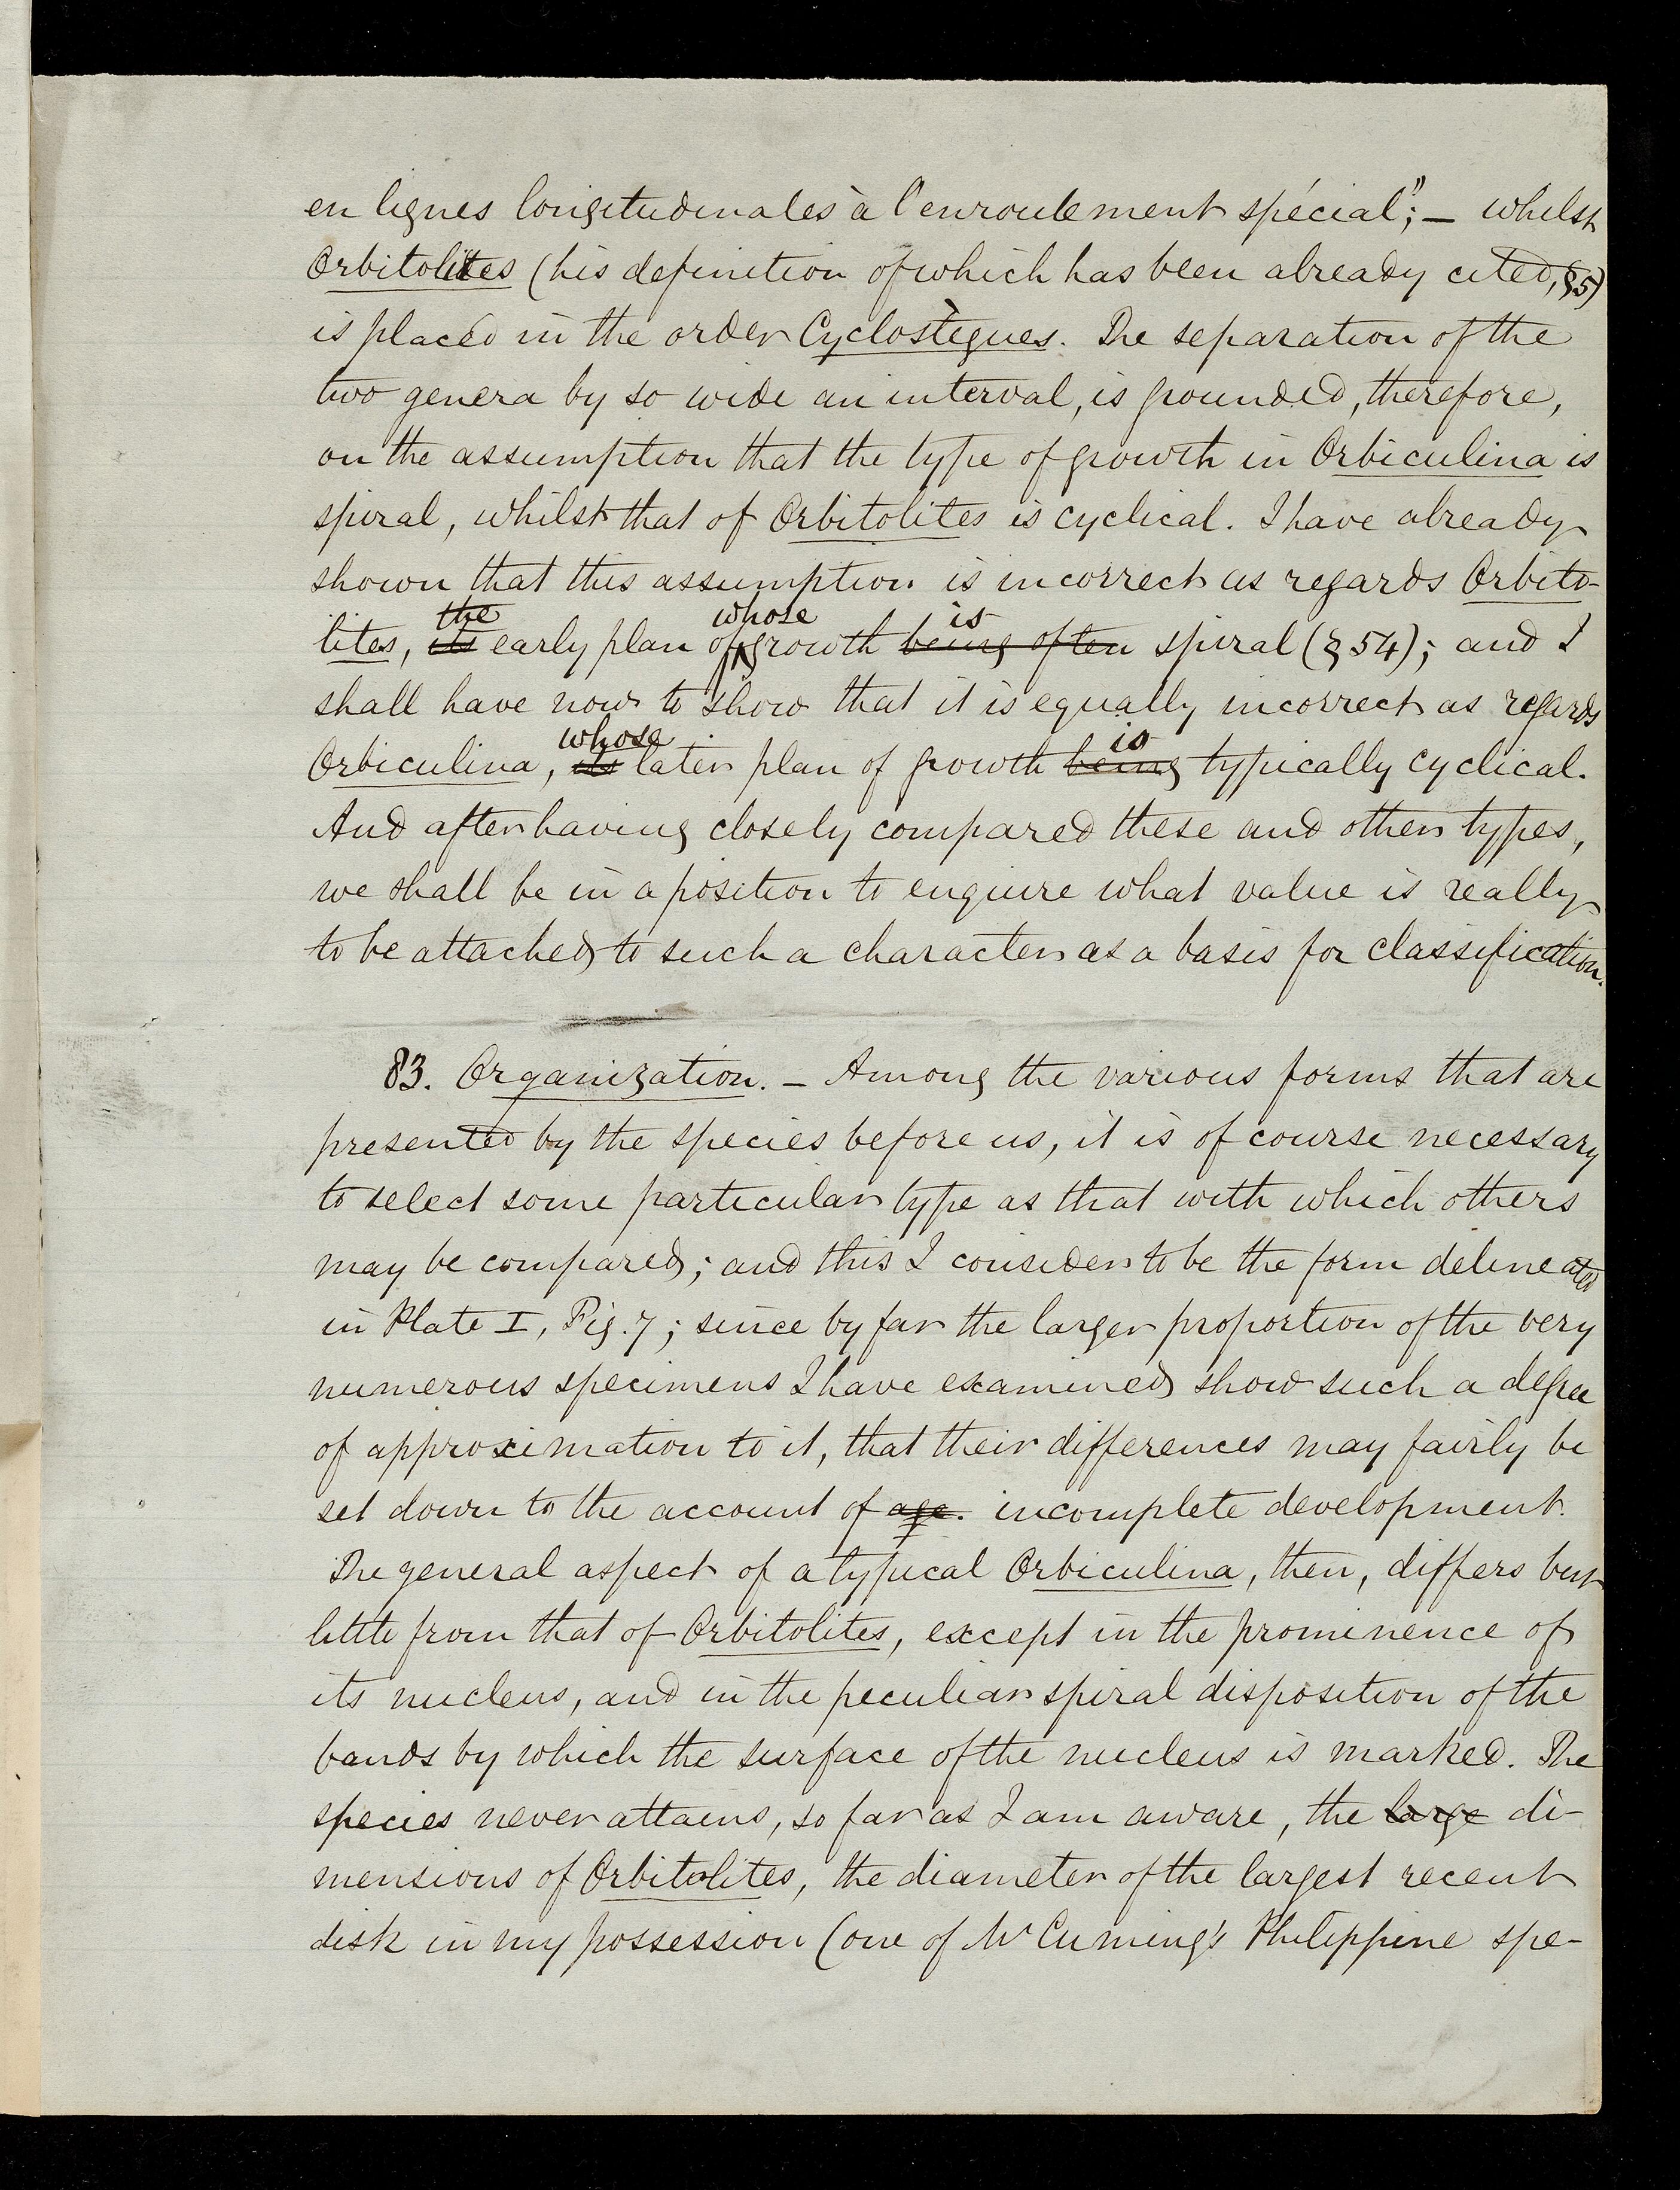 en lignes longitudinales à l'enroulement spécial"; — whilst
Orbitolites (his definition of which has been already cited, § 5)
is placed in the order Cyclostègues. The separation of the
two genera by so wide an interval, is grounded, therefore,
on the assumption that the type of growth in Orbiculina is
spiral, whilst that of Orbitolites is cyclical. I have already
shown that this assumption is incorrect as regards Orbito-
the whose is
lites, its early plan of growth being often spiral (§ 54); and I
shall have now to show that it is equally incorrect as regards
whose is
Orbiculina, its later plan of growth being typically cyclical.
And after having closely compared these and other types,
we shall be in a position to enquire what value is really
to be attached to such a character as a basis for classification.
83. Organization. — Among the various forms that are
presented by the species before us, it is of course necessary
to select some particular type as that with which others
may be compared; and this I consider to be the form delineated
in Plate I, Fig. 7; since by far the larger proportion of the very
numerous specimens I have examined show such a degree
of approximation to it, that their differences may fairly be
set down to the account of age. incomplete development.
The general aspect of a typical Orbiculina, then, differs but
little from that of Orbitolites, except in the prominence of
its nucleus, and in the peculiar spiral disposition of the
bands by which the surface of the nucleus is marked. The
species never attains, so far as I am aware, the large di-
mensions of Orbitolites, the diameter of the largest recent
disk in my possession (one of Mr Cuming's Philippine spe-